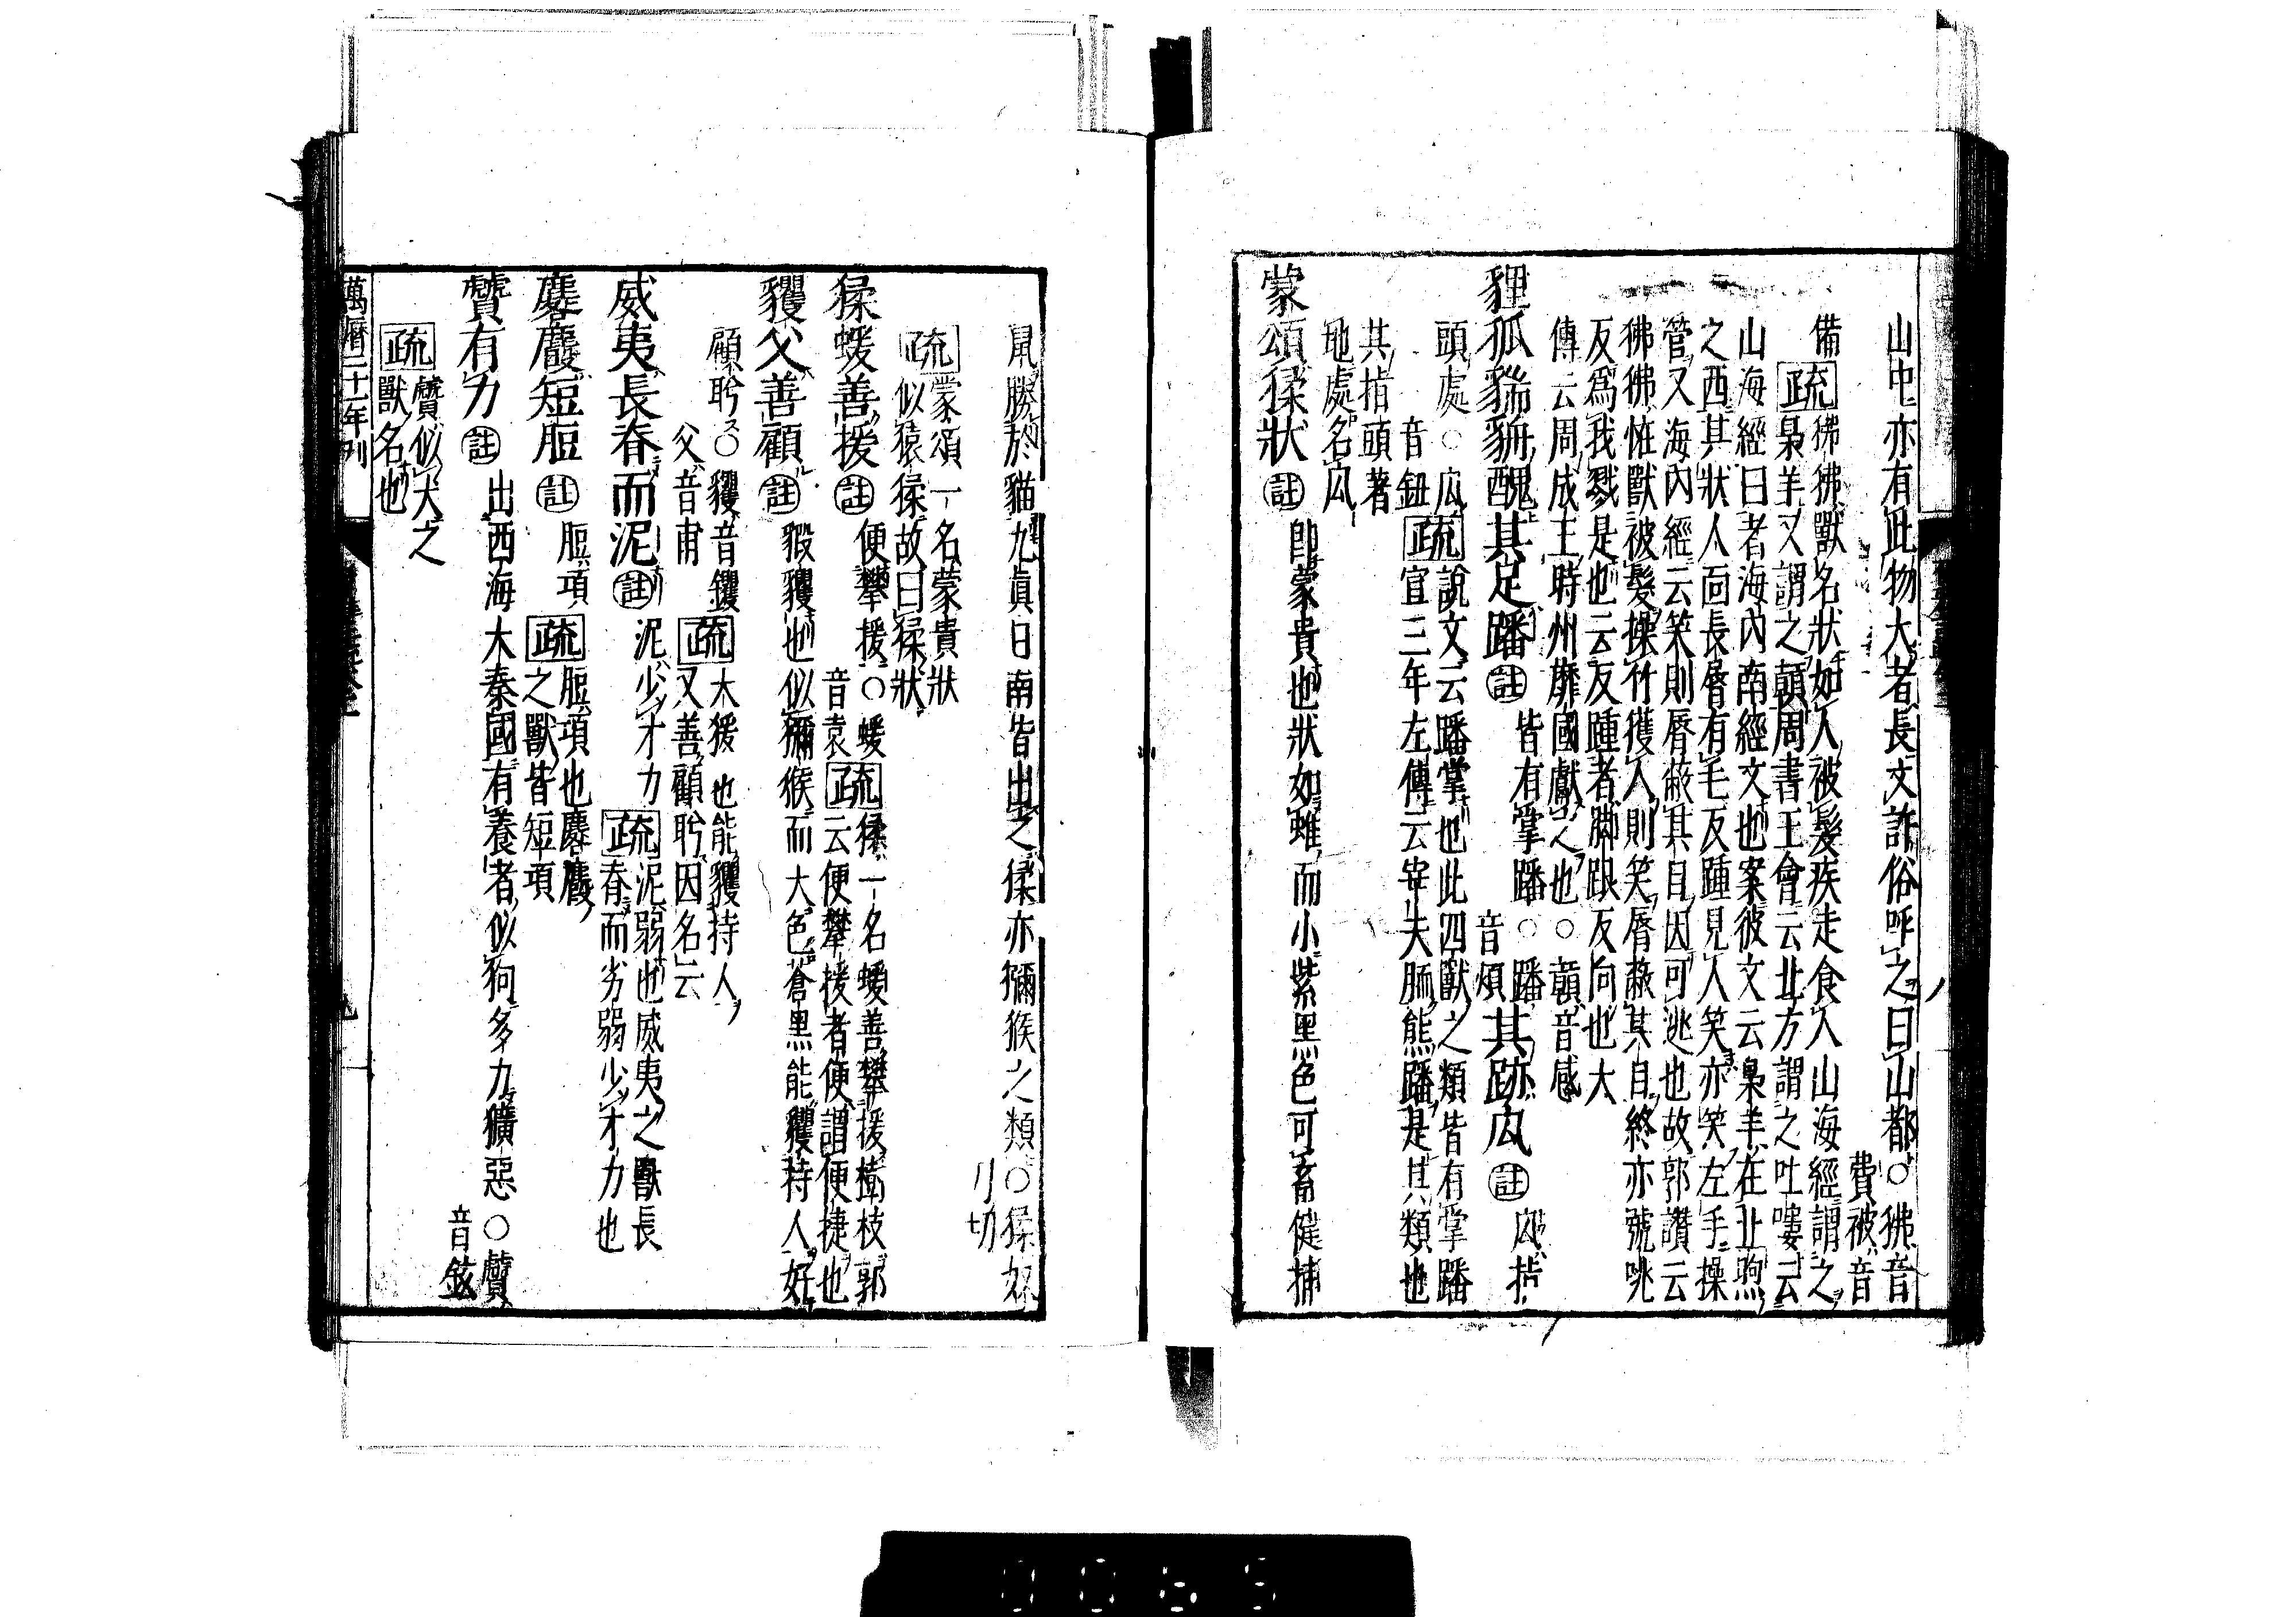 山中亦有此物大者長丈許俗呼之曰山都○狒音
費被音
備
疏狒狒獸名狀如人被髮疾走食人山海經謂之
梟羊又謂之贑周書王會云北方謂之吐嘍云
山海經曰者海內南經文也案彼文云梟羊在北朐
之西其狀人面長脣有毛反踵見人笑亦笑左手操
管又海內經云笑則脣蔽其目因可逃也故郭讚云
狒狒怪獸被髮操竹獲人則笑脣蔽其目終亦號咷
反爲我戮是也云反踵者腳跟反向也大
傳云周成王時州靡國獻之也○贑音感
貍狐貒貈醜其足蹯註皆有掌蹯○蹯
音煩
其跡厹註厹指
頭處○厹
音鈕
疏說文云蹯掌也此四獸之類皆有掌蹯
宣三年左傳云宰夫胹熊蹯是其類也
其指頭著
地處名厹
蒙頌猱狀註即蒙貴也狀如蜼而小紫黑色可畜健捕
鼠勝於貓九真日南皆出之猱亦獼猴之類○猱奴
刀切
疏蒙頌一名蒙貴狀
似猿猱故曰猱狀
猱蝯善援註便攀援○蝯
音袁
疏猱一名蝯善攀援樹枝郭
云便攀援者便謂便捷也
貜父善顧註猳貜也似獼猴而大色蒼黑能貜持人好
顧盻○貜音钁
父音甫
疏大猨也能貜持人
又善顧盻因名云
威夷長脊而泥註泥少才力疏泥弱也威夷之獸長
脊而劣弱少才力也
麔麚短脰註脰項疏脰項也麔麚
之獸皆短項
贙有力註出西海大秦國有養者似狗多力獷惡○贙
音鉉
疏贙似犬之
獸名也
萬曆二十一年刊